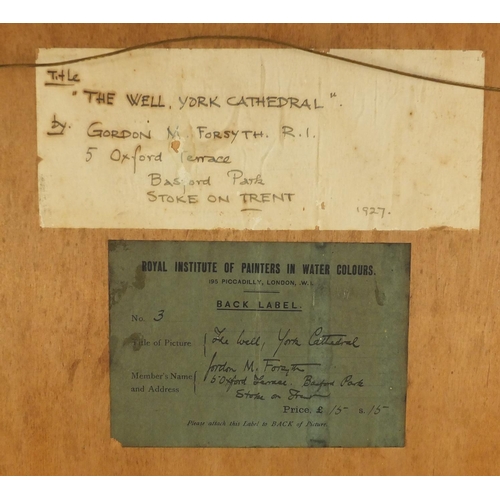 Title
"THE WELL, YORK CATHEDRAL".
by. GORDON M. FORSYTH. R.I.
5 Oxford Terrace
Basford Park
STOKE ON TRENT
1927.
ROYAL INSTITUTE OF PAINTERS IN WATER COLOURS.
195 PICCADILLY, LONDON, W.1.
BACK LABEL.
No. 3
Title of Picture The Well, York Cathedral
Gordon M. Forsyth
Member's Name 5 Oxford Terrace. Basford Park
and Address Stoke on Trent
Price, £ 15 s. 15
Please attach this Label to BACK of Picture.